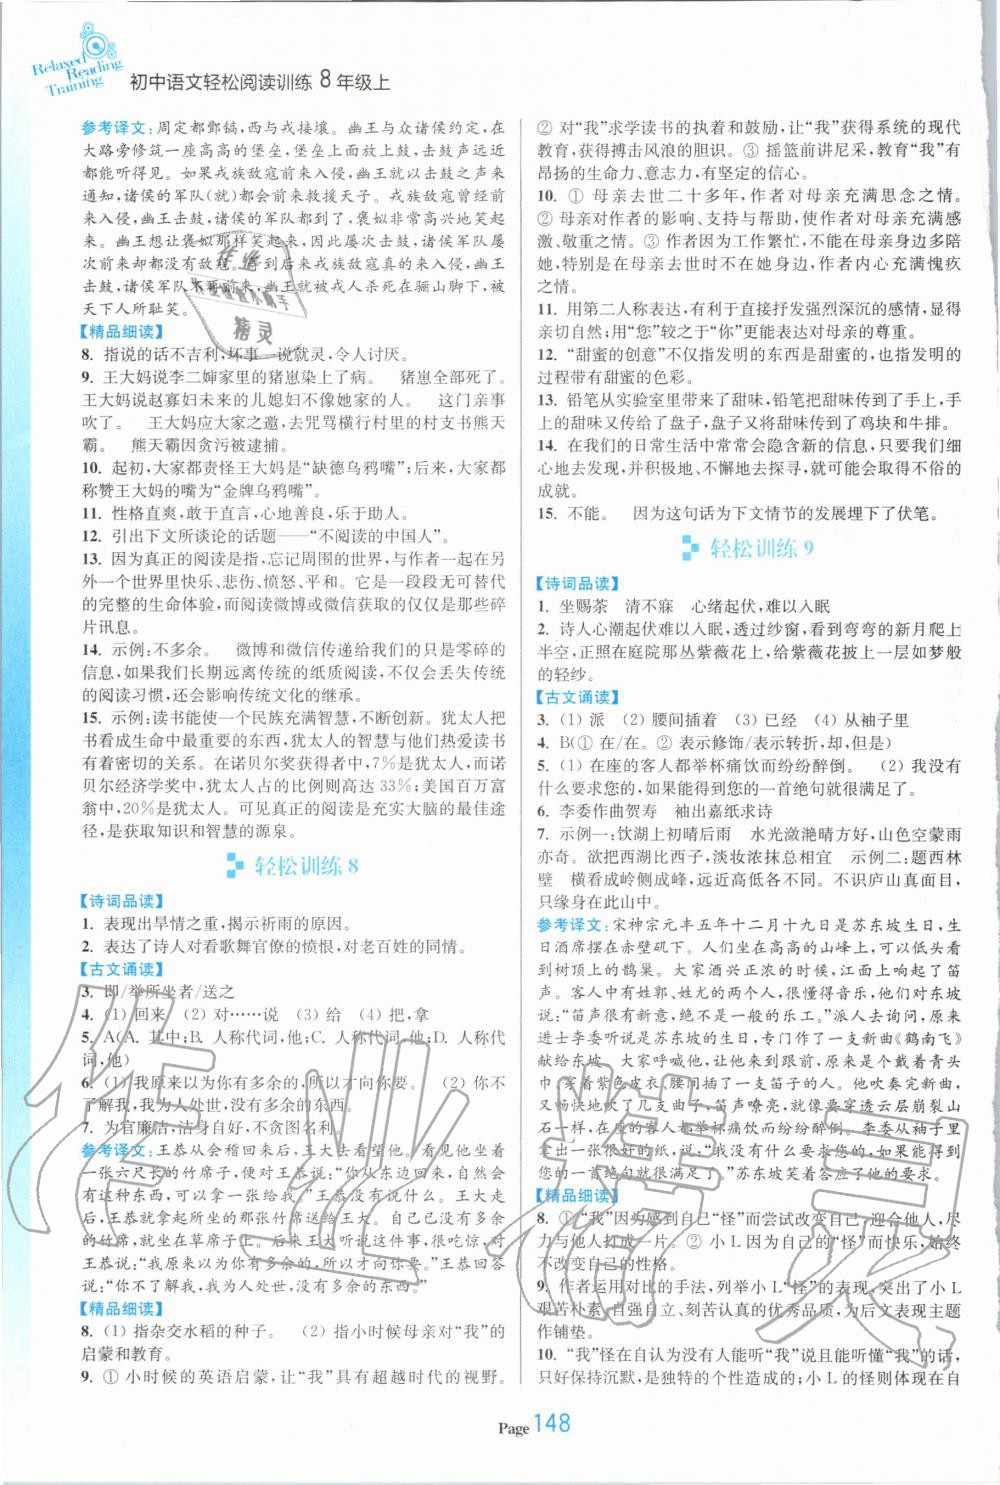 Relaxed
Reading
Training
初中语文轻松阅读训练 8年级上
参考译文:周定都酆镐,西与戎接壤。幽王与众诸侯约定,在
大路旁修筑一座高高的堡垒,堡垒上面放上鼓,击鼓远近都
能听得见。如果戎族敌寇前来入侵,幽王就让人击起鼓来
通知,诸侯的军队(就)都会前来救援天子。戎族敌寇曾经前
来入侵,幽王击鼓,诸侯的军队都到了,褒姒非常高兴地笑起
来。幽王想让褒姒那样笑起来,因此屡次击鼓,诸侯军队屡
次来却都没有敌寇。等到后来戎族敌寇真的来入侵,幽王
击鼓但诸侯的军队不来,幽王就被戎人杀死在骊山脚下,被
天下人所耻笑。
【精品细读】
8. 指说的话不吉利,坏事一说就灵,令人讨厌。
9. 王大妈说李二婶家里的猪崽染上了病。 猪崽全部死了。
王大妈说赵寡妇未来的儿媳妇不像她家的人。 这门亲事
吹了。 王大妈应大家之邀,去咒骂横行村里的村支书熊天
霸。 熊天霸因贪污被逮捕。
10. 起初,大家都责怪王大妈是“缺德乌鸦嘴”;后来,大家都
称赞王大妈的嘴为“金牌乌鸦嘴”。
11. 性格直爽,敢于直言,心地善良,乐于助人。
12. 引出下文所谈论的话题——“不阅读的中国人”。
13. 因为真正的阅读是指,忘记周围的世界,与作者一起在另
外一个世界里快乐、悲伤、愤怒、平和。它是一段段无可替代
的完整的生命体验,而阅读微博或微信获取的仅仅是那些碎
片讯息。
14. 示例:不多余。 微博和微信传递给我们的只是零碎的
信息,如果我们长期远离传统的纸质阅读,不仅会丢失传统
的阅读习惯,还会影响传统文化的继承。
15. 示例:读书能使一个民族充满智慧,不断创新。犹太人把
书看成生命中最重要的东西,犹太人的智慧与他们热爱读书
有着密切的关系。在诺贝尔奖获得者中,7%是犹太人,在诺
贝尔经济学奖中,犹太人占的比例则高达33%;美国百万富
翁中,20%是犹太人。可见真正的阅读是充实大脑的最佳途
径,是获取知识和智慧的源泉。
轻松训练8
【诗词品读】
1. 表现出旱情之重,揭示祈雨的原因。
2. 表达了诗人对看歌舞官僚的愤恨,对老百姓的同情。
【古文诵读】
3. 即/举所坐者/送之
4. (1) 回来 (2) 对……说 (3) 给 (4) 把,拿
5. A(A. 其中;B. 人称代词,他;C. 人称代词,他;D. 人称代
词,他)
6. (1) 我原来以为你有多余的,所以才向你要。 (2) 你不
了解我,我为人处世,没有多余的东西。
7. 为官廉洁,洁身自好,不贪图名利。
参考译文:王恭从会稽回来后,王大去看望他。看见他坐着
一张六尺长的竹席子,便对王恭说:“你从东边回来,自然会
有这种东西,可以拿一张给我。”王恭没有说什么。王大走
后,王恭就拿起所坐的那张竹席送给王大。自己已没有多余
的竹席,就坐在草席子上。后来王大听说这件事,很吃惊,对
王恭说:“我原来以为你有多余的,所以才向你要。”王恭回答
说:“你不了解我,我为人处世,没有多余的东西。”
【精品细读】
8. (1) 指杂交水稻的种子。 (2) 指小时候母亲对“我”的
启蒙和教育。
9. ① 小时候的英语启蒙,让“我”具有超越时代的视野。
② 对“我”求学读书的执着和鼓励,让“我”获得系统的现代
教育,获得搏击风浪的胆识。③ 摇篮前讲尼采,教育“我”有
昂扬的生命力、意志力,有坚定的信心。
10. ① 母亲去世二十多年,作者对母亲充满思念之情。
② 母亲对作者的影响、支持与帮助,使作者对母亲充满感
激、敬重之情。③ 作者因为工作繁忙,不能在母亲身边多陪
她,特别是在母亲去世时不在她身边,作者内心充满愧疚
之情。
11. 用第二人称表达,有利于直接抒发强烈深沉的感情,显得
亲切自然;用“您”较之于“你”更能表达对母亲的尊重。
12. “甜蜜的创意”不仅指发明的东西是甜蜜的,也指发明的
过程带有甜蜜的色彩。
13. 铅笔从实验室里带来了甜味,铅笔把甜味传到了手上,手
上的甜味又传给了盘子,盘子上的甜味又传到了鸡块和牛排。
14. 在我们的日常生活中常常会隐含新的信息,只要我们细
心地去发现,并积极地、不懈地去探寻,就可能取得不俗的
成就。
15. 不能。 因为这句话为下文情节的发展埋下了伏笔。
轻松训练9
【诗词品读】
1. 坐赐茶 清不寐 心绪起伏,难以入眠
2. 诗人心潮起伏难以入眠,透过纱窗,看到弯弯的新月爬上
半空,正照在庭院那丛紫薇花上,给紫薇花披上一层如梦般
的轻纱。
【古文诵读】
3. (1) 派 (2) 腰间插着 (3) 已经 (4) 从袖子里
4. B(① 在/在。② 表示修饰/表示转折,却,但是)
5. (1) 在座的客人都举杯痛饮而纷纷醉倒。 (2) 我没有
什么要求您的,如果能得到您的一首绝句就很满足了。
6. 李委作曲贺寿 袖出嘉纸求诗
7. 示例一:饮湖上初晴后雨 水光潋滟晴方好,山色空蒙雨
亦奇。欲把西湖比西子,淡妆浓抹总相宜 示例二:题西林
壁 横看成岭侧成峰,远近高低各不同。不识庐山真面目,
只缘身在此山中。
参考译文:宋神宗元丰五年十二月十九日是苏东坡生日,生
日酒席摆在赤壁矶下。人们坐在高高的山峰上,可以低头看
到树顶上的鹊巢。大家酒兴正浓的时候,江面上响起了笛
声。客人中有郭姓、尤姓的两个人,很懂得音乐,他们对东坡
说:“笛声很有新意,绝不是一般的乐工。”派人去询问,原来
进士李委听说今天是苏东坡的生日,专门作了一支新曲《鹤南飞》
献给东坡。大家呼喊他,让他来到跟前,原来是个戴着青头
巾、穿着紫色皮衣、腰间插了一支笛子的人。他吹奏完新曲,
又畅快地吹了几支曲子,笛声嘹亮,就像要穿透云层崩裂山
石一样,在座的客人都举杯痛饮而纷纷醉倒。李委从袖子里
拿出一张好纸说:“我没有什么要求您的,如果能得到
您的一首绝句就很满足了。”苏东坡笑着答应了他的要求。
【精品细读】
8. ①“我”因为感到自己“怪”而尝试改变自己,迎合他人,尽
力与他人打成一片。② 小L因为自己的“怪”而开心快乐,始终
不改变自己的性格。
9. 作者运用对比的手法,列举小L“怪”的表现,突出了小L
艰苦朴素、刻苦认真的优秀品质,为后文表现主题
作铺垫。
10. “我”怪在自认为没有人能听“我”说而且能听懂“我”的话,
只好保持沉默,是独特的个性造成的;小L的怪则体现在自
Page 148